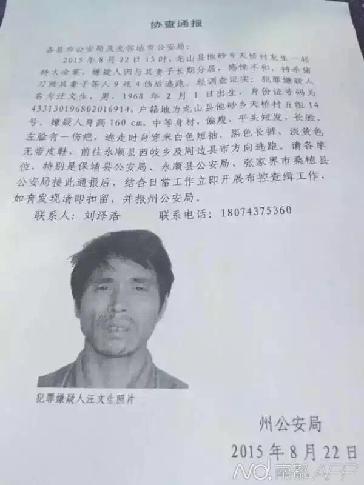 协查通报
各县市公安局及龙山邻场市公安局：
2015年8月22日15时，龙山县他砂乡天桥村发生一起
特大命案，嫌疑人因与其妻子长期分居，感情不和，持杀猪
刀将其妻子等人9死4伤后逃跑。经调查证实：犯罪嫌疑人
名为汪文生，男，1968年2月1日出生，身份证号码为
433130196802016914，户籍地为龙山县他砂乡天桥村五组14
号。嫌疑人身高160cm，中等身材，偏瘦，平头短发，长脸，
左脸有一伤疤，逃走时台穿米白色短袖，黑色长裤，淡黄色
无带皮鞋，前往永顺县西岐乡及周边县市方向逃跑。请各单
位，特别是保靖县公安局、永顺县公安局、张家界市桑植县
公安局接此通报后，结合日常工作立即开展布控查缉工作，
如有发现请即扣留，并报州公安局。
联系人：刘泽浩 联系电话：18074375360
犯罪嫌疑人汪文生照片
州公安局
2015年8月22日